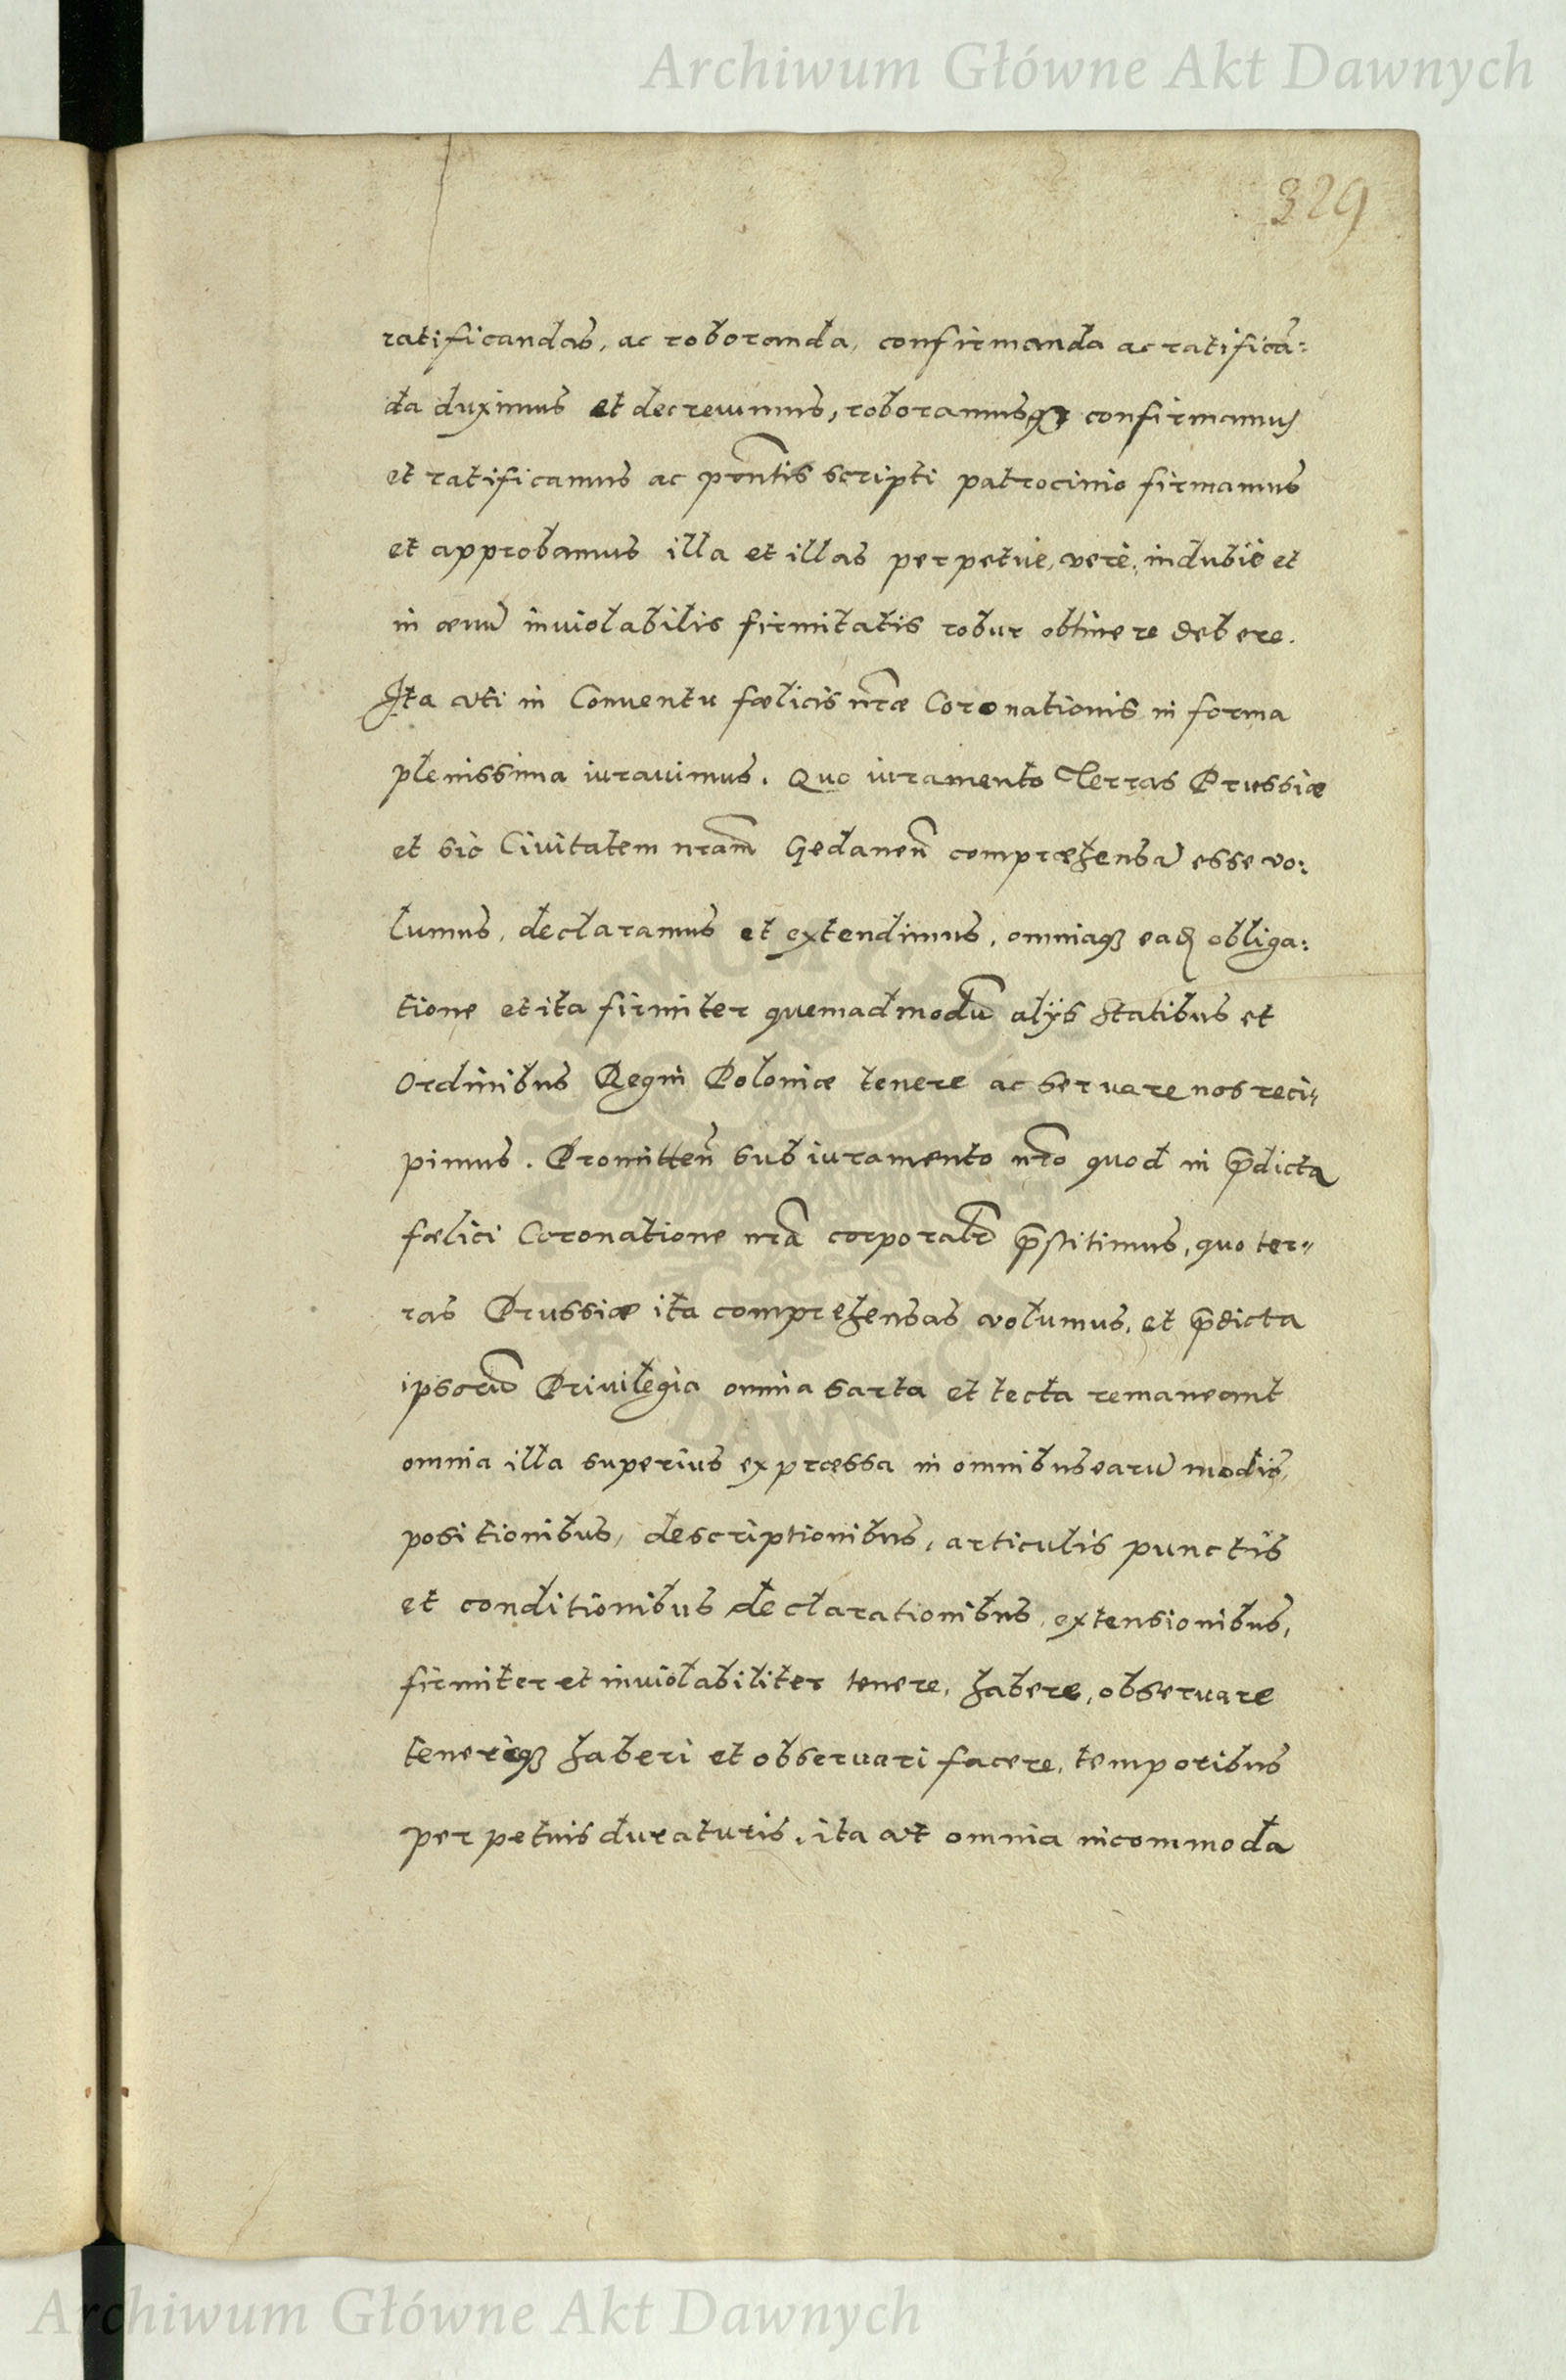 Archiwum Główne Akt Dawnych
329
ratificandas, ac roboranda, confirmanda ac ratificā:
da duximus et decreuimus, roboramusq₃ confirmamus
et ratificamus ac pñtis scripti patrocinio firmamus
et approbamus illa et illas perpetue, verè, indubiè et
in æuũ inuiolabilis firmitatis robur obtinere debere.
Ita vti in Conuentu fœlicis nr̃æ Coronationis in forma
plenissima iurauimus. Quo iuramento Terras Prussiæ
et sic Ciuitatem nr̃am Gedaneñ compræhensã esse vo:
lumus, declaramus et extendimus, omniaq₃ eadę obliga:
tione et ita firmiter quemadmodũ alÿs Statibus et
Ordinibus Regni Poloniæ tenere ac seruare nos reci"
pimus. Promitteñ sub iuramento nr̃o quod in p̃dicta
fœlici Coronatione nr̃a corporalr̃ p̃stitimus, quo ter"
ras Prussiæ ita comprehensas volumus, et p̃dicta
ipsorũ Priuilegia omnia sarta et tecta remaneant
omnia illa superius expræssa in omnibus earũ modis,
positionibus, descriptionibus, articulis punctis
et conditionibus declarationibus, extensionibus,
firmiter et inuiolabiliter tenere, habere, obseruare
teneriq₃ haberi et obseruari facere, temporibus
perpetuis duraturis, ita vt omnia incommoda
ARCHIWUM GŁÓWNE AKT DAWNYCH
Archiwum Główne Akt Dawnych